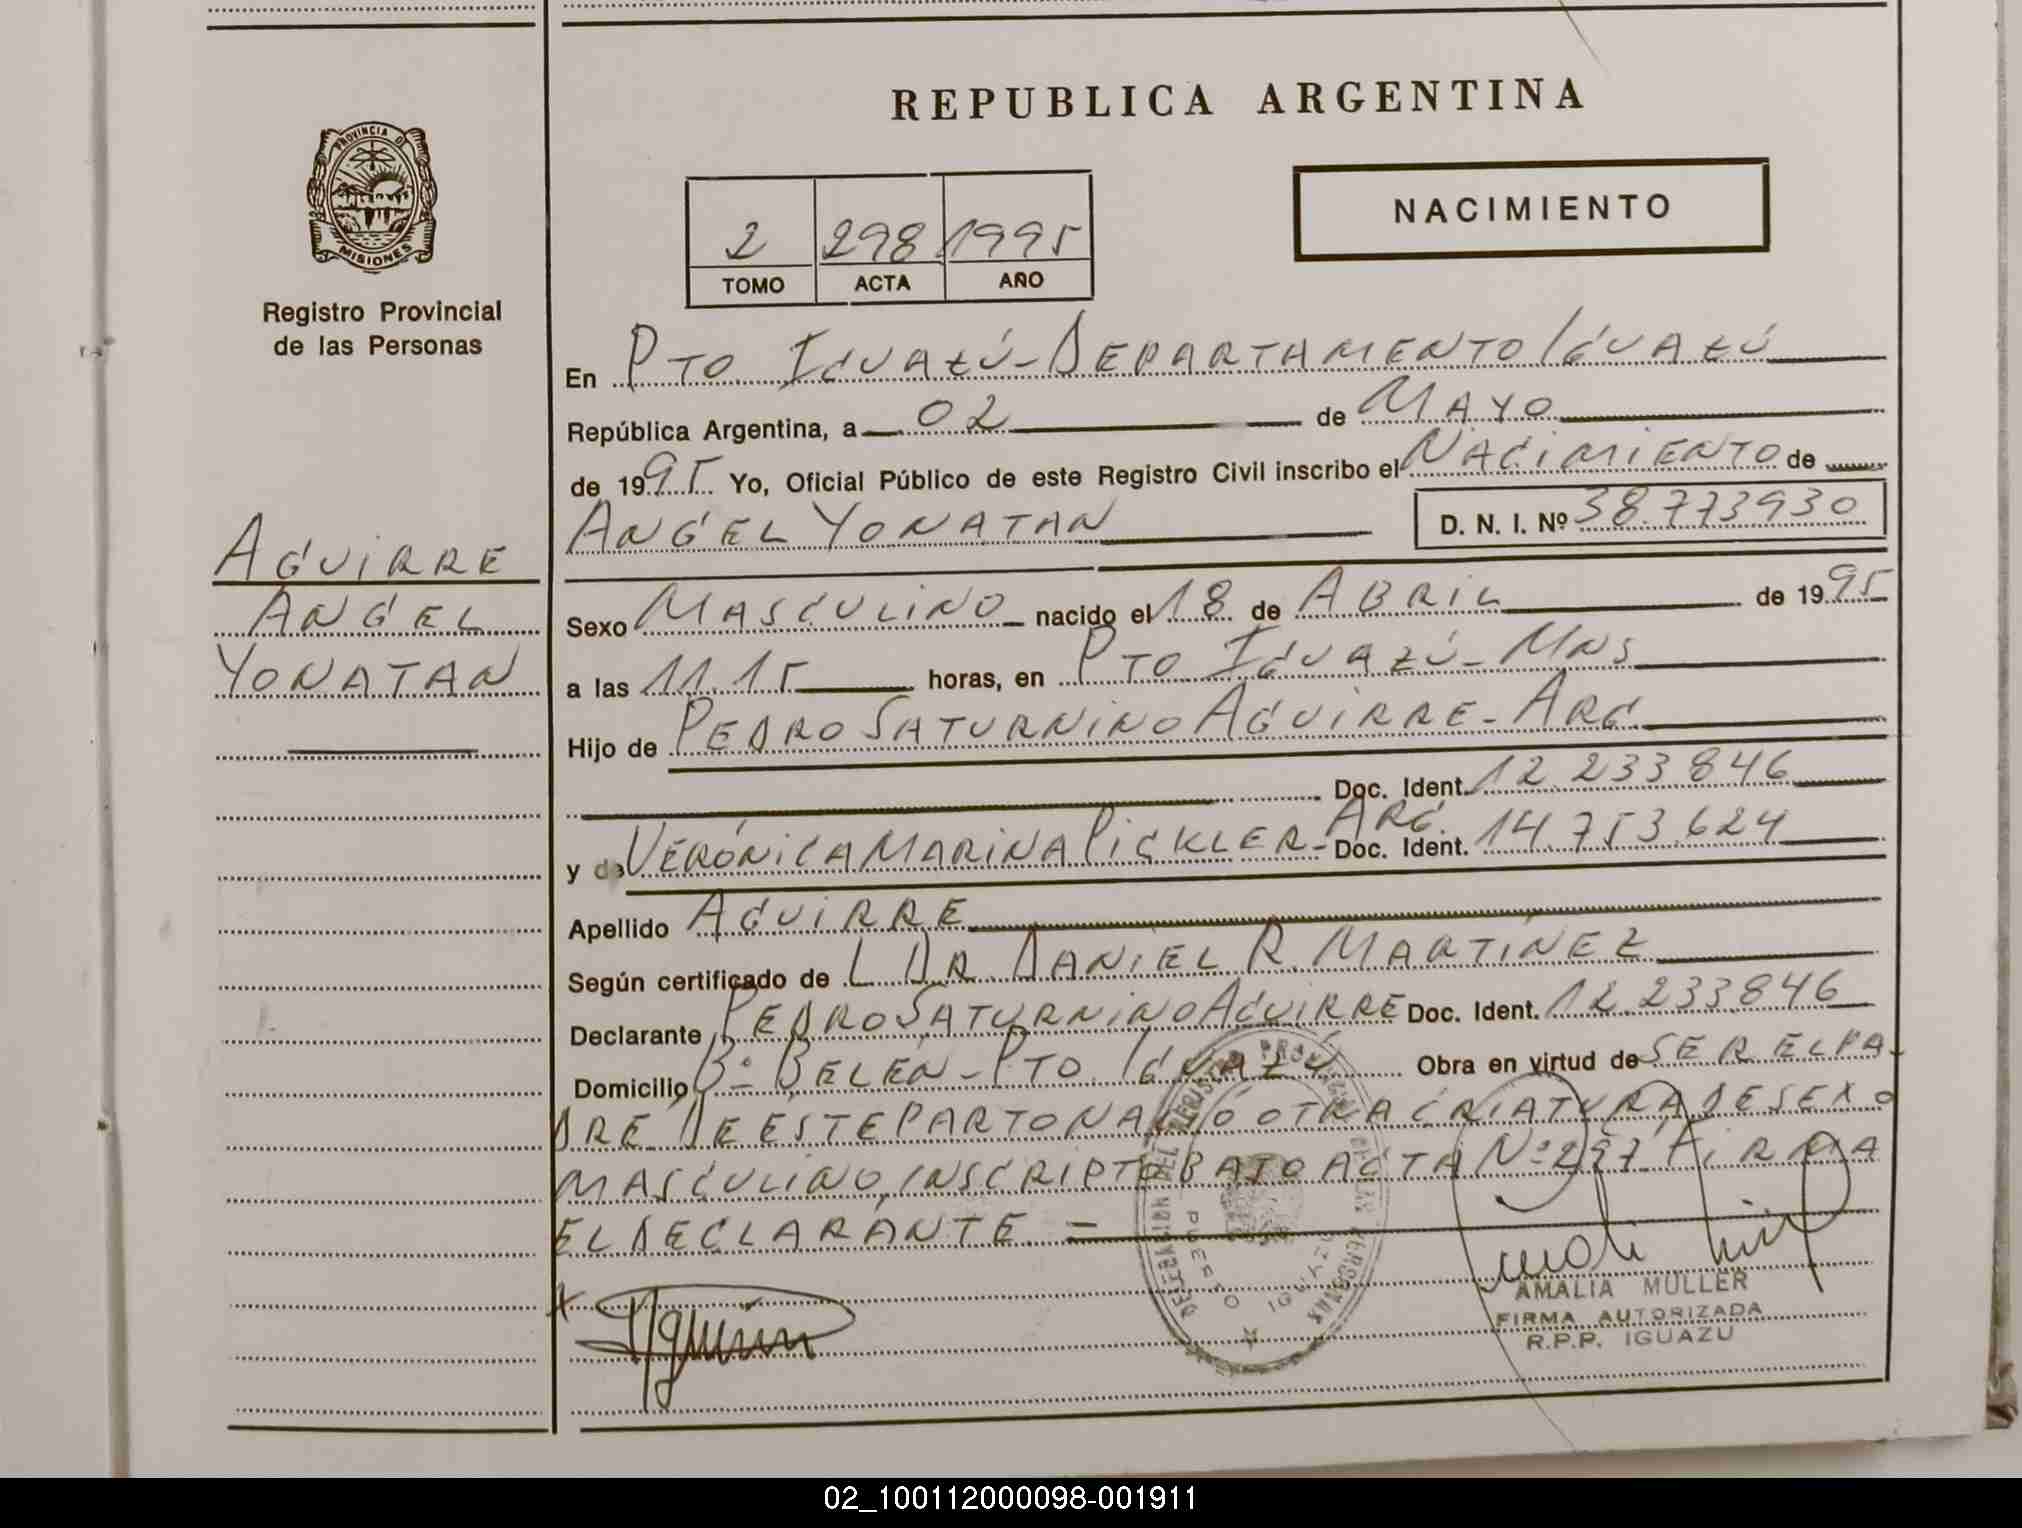 REPUBLICA ARGENTINA
PROVINCIA D
MISIONES
Registro Provincial
de las Personas
2 298 1995
TOMO ACTA AÑO
NACIMIENTO
En PTO IGUAZÚ - DEPARTAMENTO IGUAZÚ
República Argentina, a 02 de MAYO
de 1995 Yo, Oficial Público de este Registro Civil inscribo el NACIMIENTO de
ANGEL YONATAN D. N. I. Nº 38.773930
AGUIRRE
ANGEL
YONATAN
Sexo MASCULINO nacido el 18 de ABRIL de 1995
a las 11.15 horas, en PTO IGUAZÚ - MNS
Hijo de PEDRO SATURNINO AGUIRRE - ARG
Doc. Ident. 12.233.846
y de VERÓNICA MARINA PICKLER - ARG. Doc. Ident. 14.753.624
Apellido AGUIRRE
Según certificado de L DR. DANIEL R. MARTÍNEZ
Declarante PEDRO SATURNINO AGUIRRE Doc. Ident. 12.233.846
Domicilio Bº BELÉN - PTO IGUAZÚ Obra en virtud de SER EL PA-
DRE. DE ESTE PARTO NACIÓ OTRA CRIATURA DE SEXO
MASCULINO, INSCRIPTO BAJO ACTA Nº 297. FIRMA
EL DECLARANTE. =
X Aguirre
AMALIA MULLER
FIRMA AUTORIZADA
R.P.P. IGUAZU
PUERTO IGUAZU
02_100112000098-001911